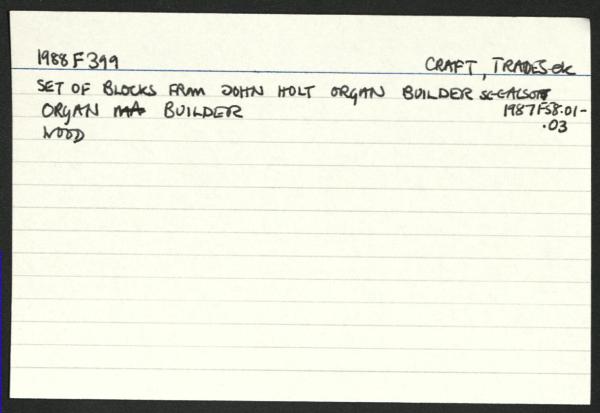 1988 F 399 CRAFT, TRADES etc
SET OF BLOCKS FROM JOHN HOLT ORGAN BUILDER SEE ALSO
1987 F58.01-
ORGAN BUILDER
.03
WOOD